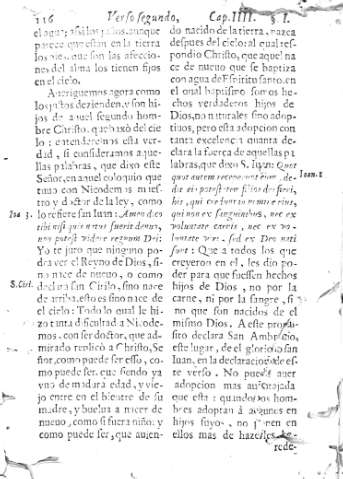 116 Verso segundo, Cap. IIII. § I.
el agua; assi los justos, aunque
parece que estan en la tierra
los pies, que son las afecciones
del alma los tienen fijos
en el cielo.
Aueriguemos agora como
los justos dezienden, y son hijos
de aquel segundo hombre
Christo, que baxò del cielo
: entenderemos esta verdad,
si consideramos aquellas
palabras, que dixo este
Señor, en aquel coloquio que
tuuo con Nicodemus maestro
y doctor de la ley, como
Ioa 3. lo refiere san Iuan: Amen dico
tibi nisi quis natus fuerit denuo,
non potest videre regnum Dei:
Yo te juro que ninguno podra
ver el Reyno de Dios, sino
nace de nueuo, o como
S. Ciril. declara san Cirilo, sino nace
de arriba, esto es sino nace de
el cielo: Todo lo qual le hizo
tanta dificultad a Nicodemus,
con ser doctor, que admirado
replicò a Christo, Señor,
como puede ser esso, como
puede ser, que siendo ya
vno de madura edad, y viejo
entre en el bientre de su
madre, y buelua a nacer de
nueuo, como si fuera niño: y
como puede ser, que auiendo
nacido de la tierra, nazca
despues del cielo: al qual respondio
Christo, que aquel nace
de nueuo que se baptiza
con agua de Espiritu santo, en
el qual baptismo somos hechos
verdaderos hijos de
Dios, no naturales sino adoptiuos,
pero esta adopcion con
tanta excelencia quanta declara
la fuerça de aquellas palabras,
que dixo S. Iuan: Quot Ioan. 1
quot autem receperunt eum, dedit
eis potestatem filios dei fieri,
his, qui credunt in nomine eius,
qui non ex sanguinibus, nec ex
voluntate carnis, nec ex voluntate
viri, sed ex Deo nati
sunt: Que a todos los que
creyeron en el, les dio poder
para que fuessen hechos
hijos de Dios, no por la
carne, ni por la sangre, si
no que son nacidos de el
mismo Dios. A este proposito
declara San Ambrosio,
este lugar, de el glorioso san
Iuan, en la declaracion de este
verso. No puede auer
adopcion mas autorizada
que esta: quando los hombres
adoptan à algunos en
hijos suyos, no ponen en
ellos mas de hazerles he-
rede-